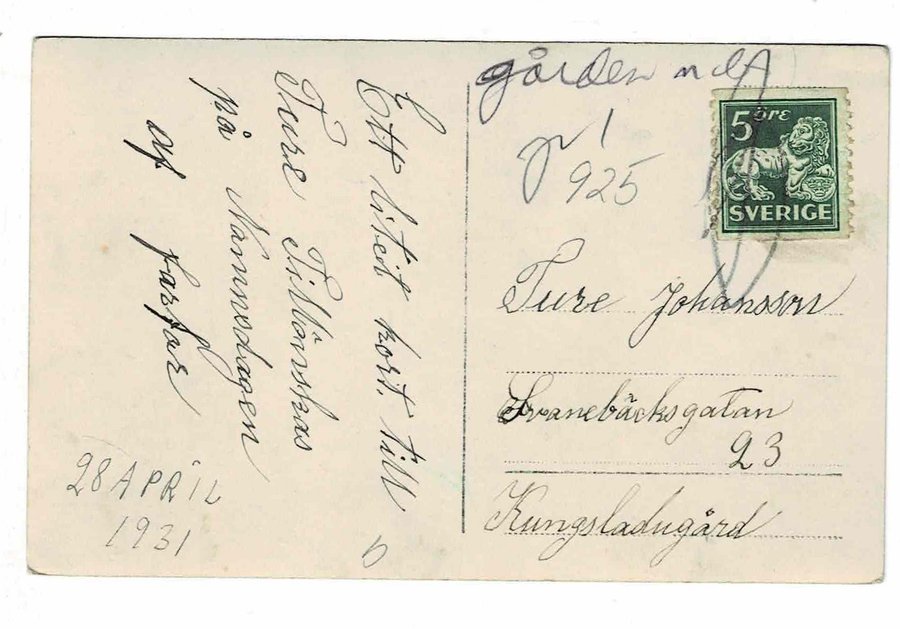 Ett litet kort till
Ture Tillönskas
på Namnsdagen
af farfar
28 APRIL
1931
gården n
1
925
5 ÖRE
SVERIGE
Ture Johansson
Svanebäcksgatan
23
Kungsladugård